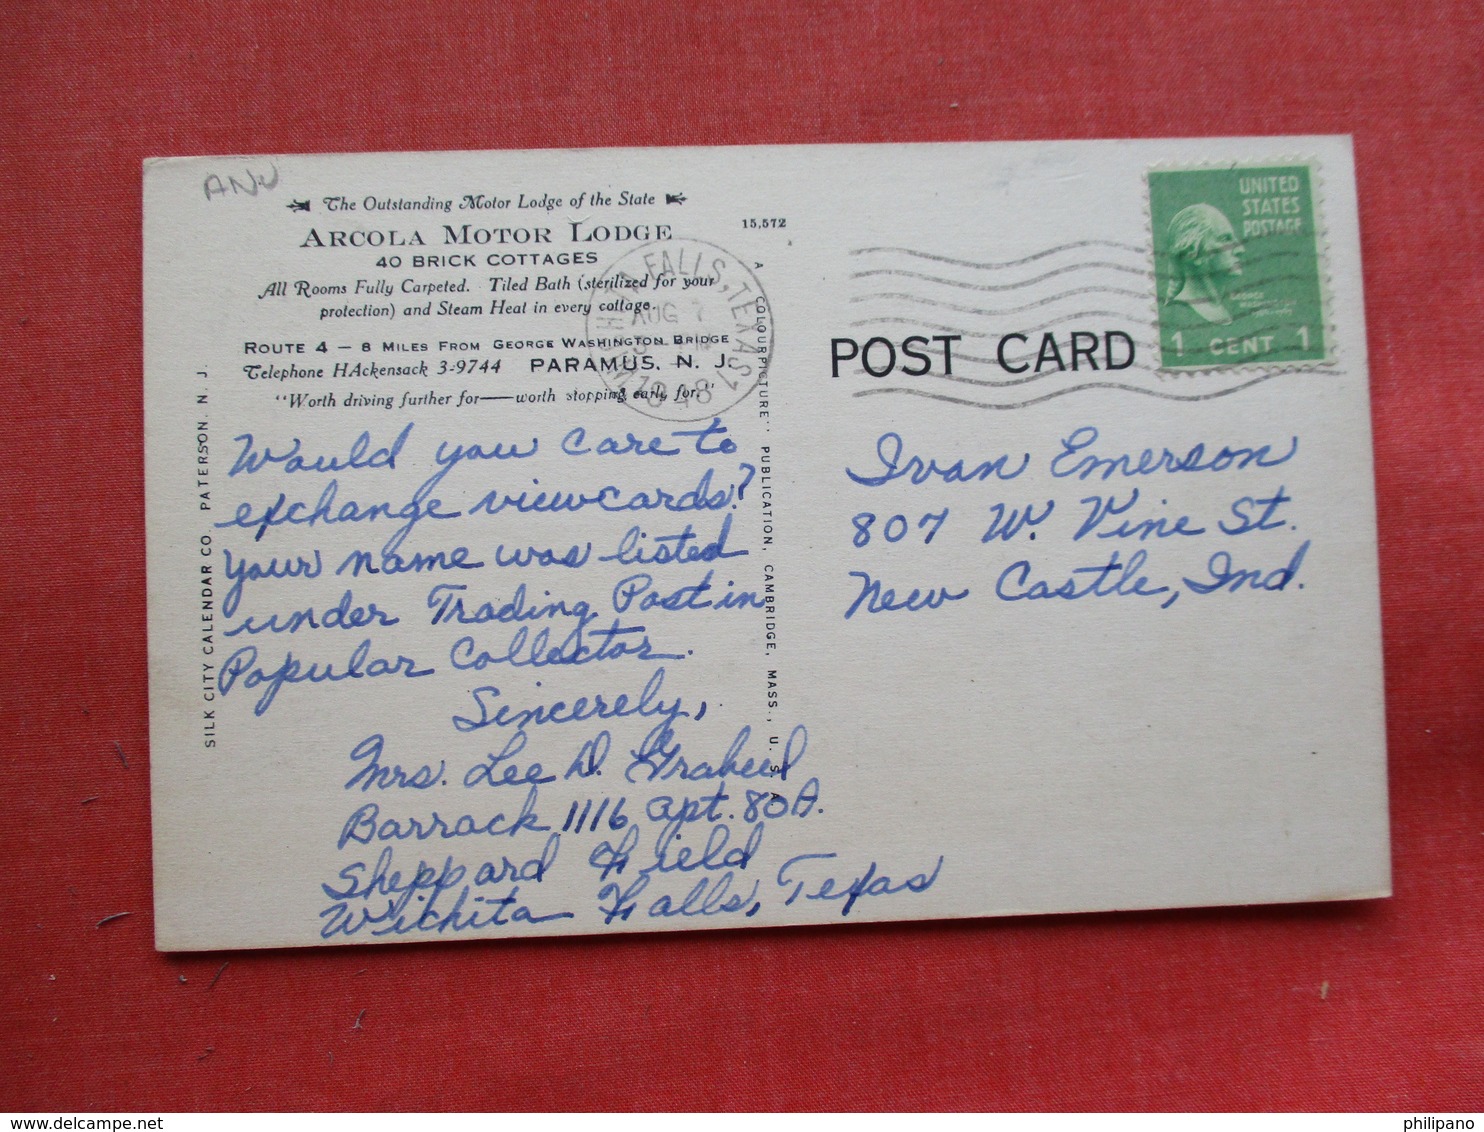 ANU
The Outstanding Motor Lodge of the State
ARCOLA MOTOR LODGE
40 BRICK COTTAGES
All Rooms Fully Carpeted. Tiled Bath (sterilized for your
protection) and Steam Heat in every cottage.
ROUTE 4 — 8 MILES FROM GEORGE WASHINGTON BRIDGE
Telephone HAckensack 3-9744 PARAMUS, N. J.
"Worth driving further for——worth stopping early for."
15,572
FALLS, TEXAS
AUG 7
1948
UNITED
STATES
POSTAGE
GEORGE
WASHINGTON
1 CENT 1
POST CARD
SILK CITY CALENDAR CO. PATERSON. N. J.
A "COLOURPICTURE" PUBLICATION, CAMBRIDGE, MASS., U. S. A.
Would you care to
exchange viewcards?
Your name was listed
under Trading Post in
Popular Collector.
Sincerely,
Mrs. Lee D.
Barrack 1116 apt. 80A.
Sheppard Field
Wichita Falls, Texas
Ivan Emerson
807 W. Vine St.
New Castle, Ind.
philipano